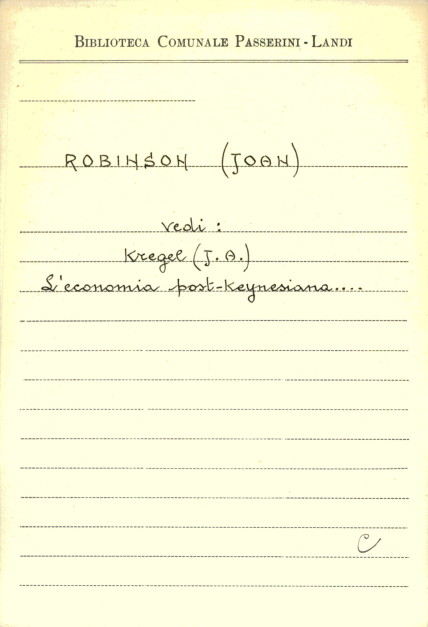 BIBLIOTECA COMUNALE PASSERINI - LANDI
ROBINSON (JOAN)
vedi :
Kregel (J. A.)
L'economia post-keynesiana....
C